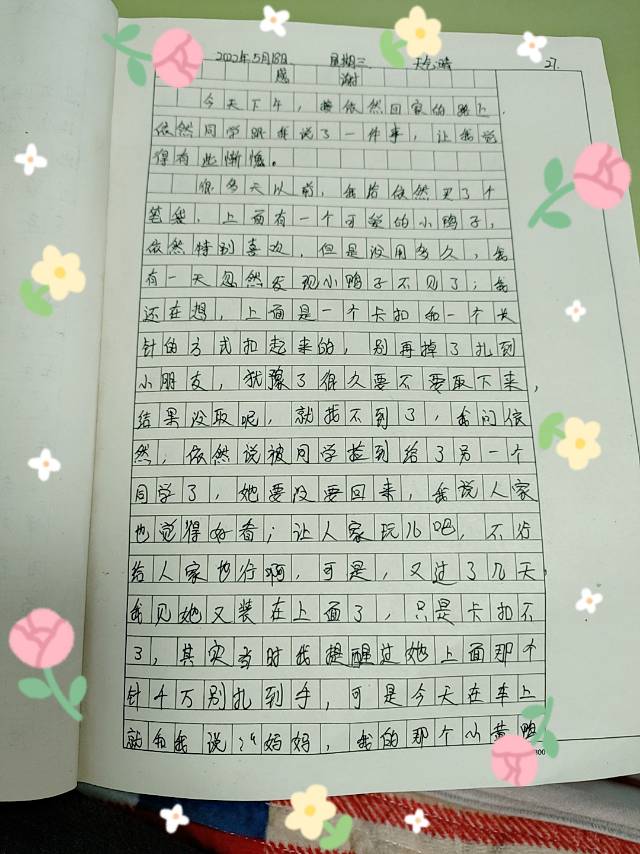 2022年5月18日 星期三 天气晴 27.
感谢
今天下午，接依然回家的路上，
依然同学跟我说了一件事，让我觉
得有些惭愧。
很多天以前，我给依然买了个
笔袋，上面有一个可爱的小鸭子，
依然特别喜欢，但是没用多久，我
有一天忽然发现小鸭子不见了；我
还在想，上面是一个卡扣和一个长
针的方式扣起来的，别再掉了扎到
小朋友，犹豫了很久要不要取下来，
结果没取呢，就找不到了，我问依
然，依然说被同学捡到给了另一个
同学了，她要没要回来，我说人家
也觉得好看；让人家玩儿吧，不行
给人家也行啊，可是，又过了几天，
我见她又装在上面了，只是卡扣不
了，其实当时我提醒过她上面那个
针千万别扎到手，可是今天在车上
就和我说：“妈妈，我的那个小黄鸭